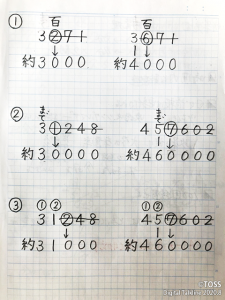 ①
百 百
3②71 3⑥71
↓ 1↓
約3000 約4000
②
3①248 45⑦602
↓ 1↓
約30000 約460000
③
①② ①②
31②48 45⑦602
↓ 1↓
約31000 約460000
TOSS
Digital Teleline 2020.8